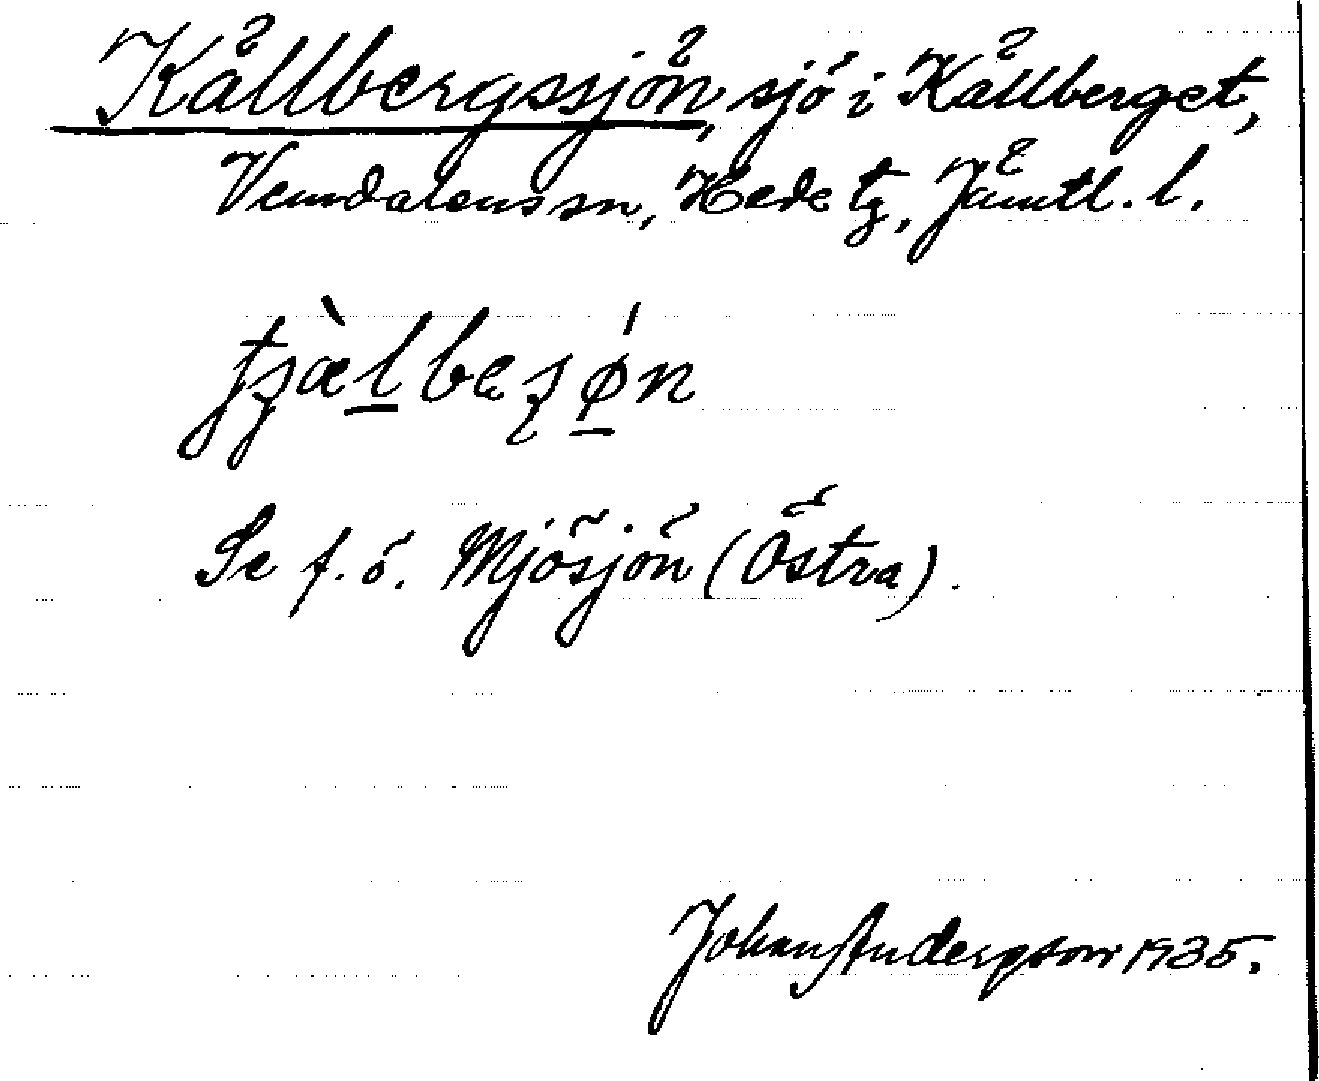 Källbergssjön, sjö i Källberget,
Vemdalens sn, Hede tg, Jämtl. l.
Se f. ö. Mjösjön (Östra).
Johan Andersson 1935.